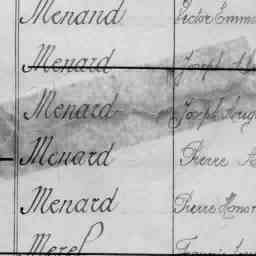 Menand Victor Emma
Menard Joseph
Menard Joseph Aug
Menard Pierre
Menard Pierre Honor
Merel